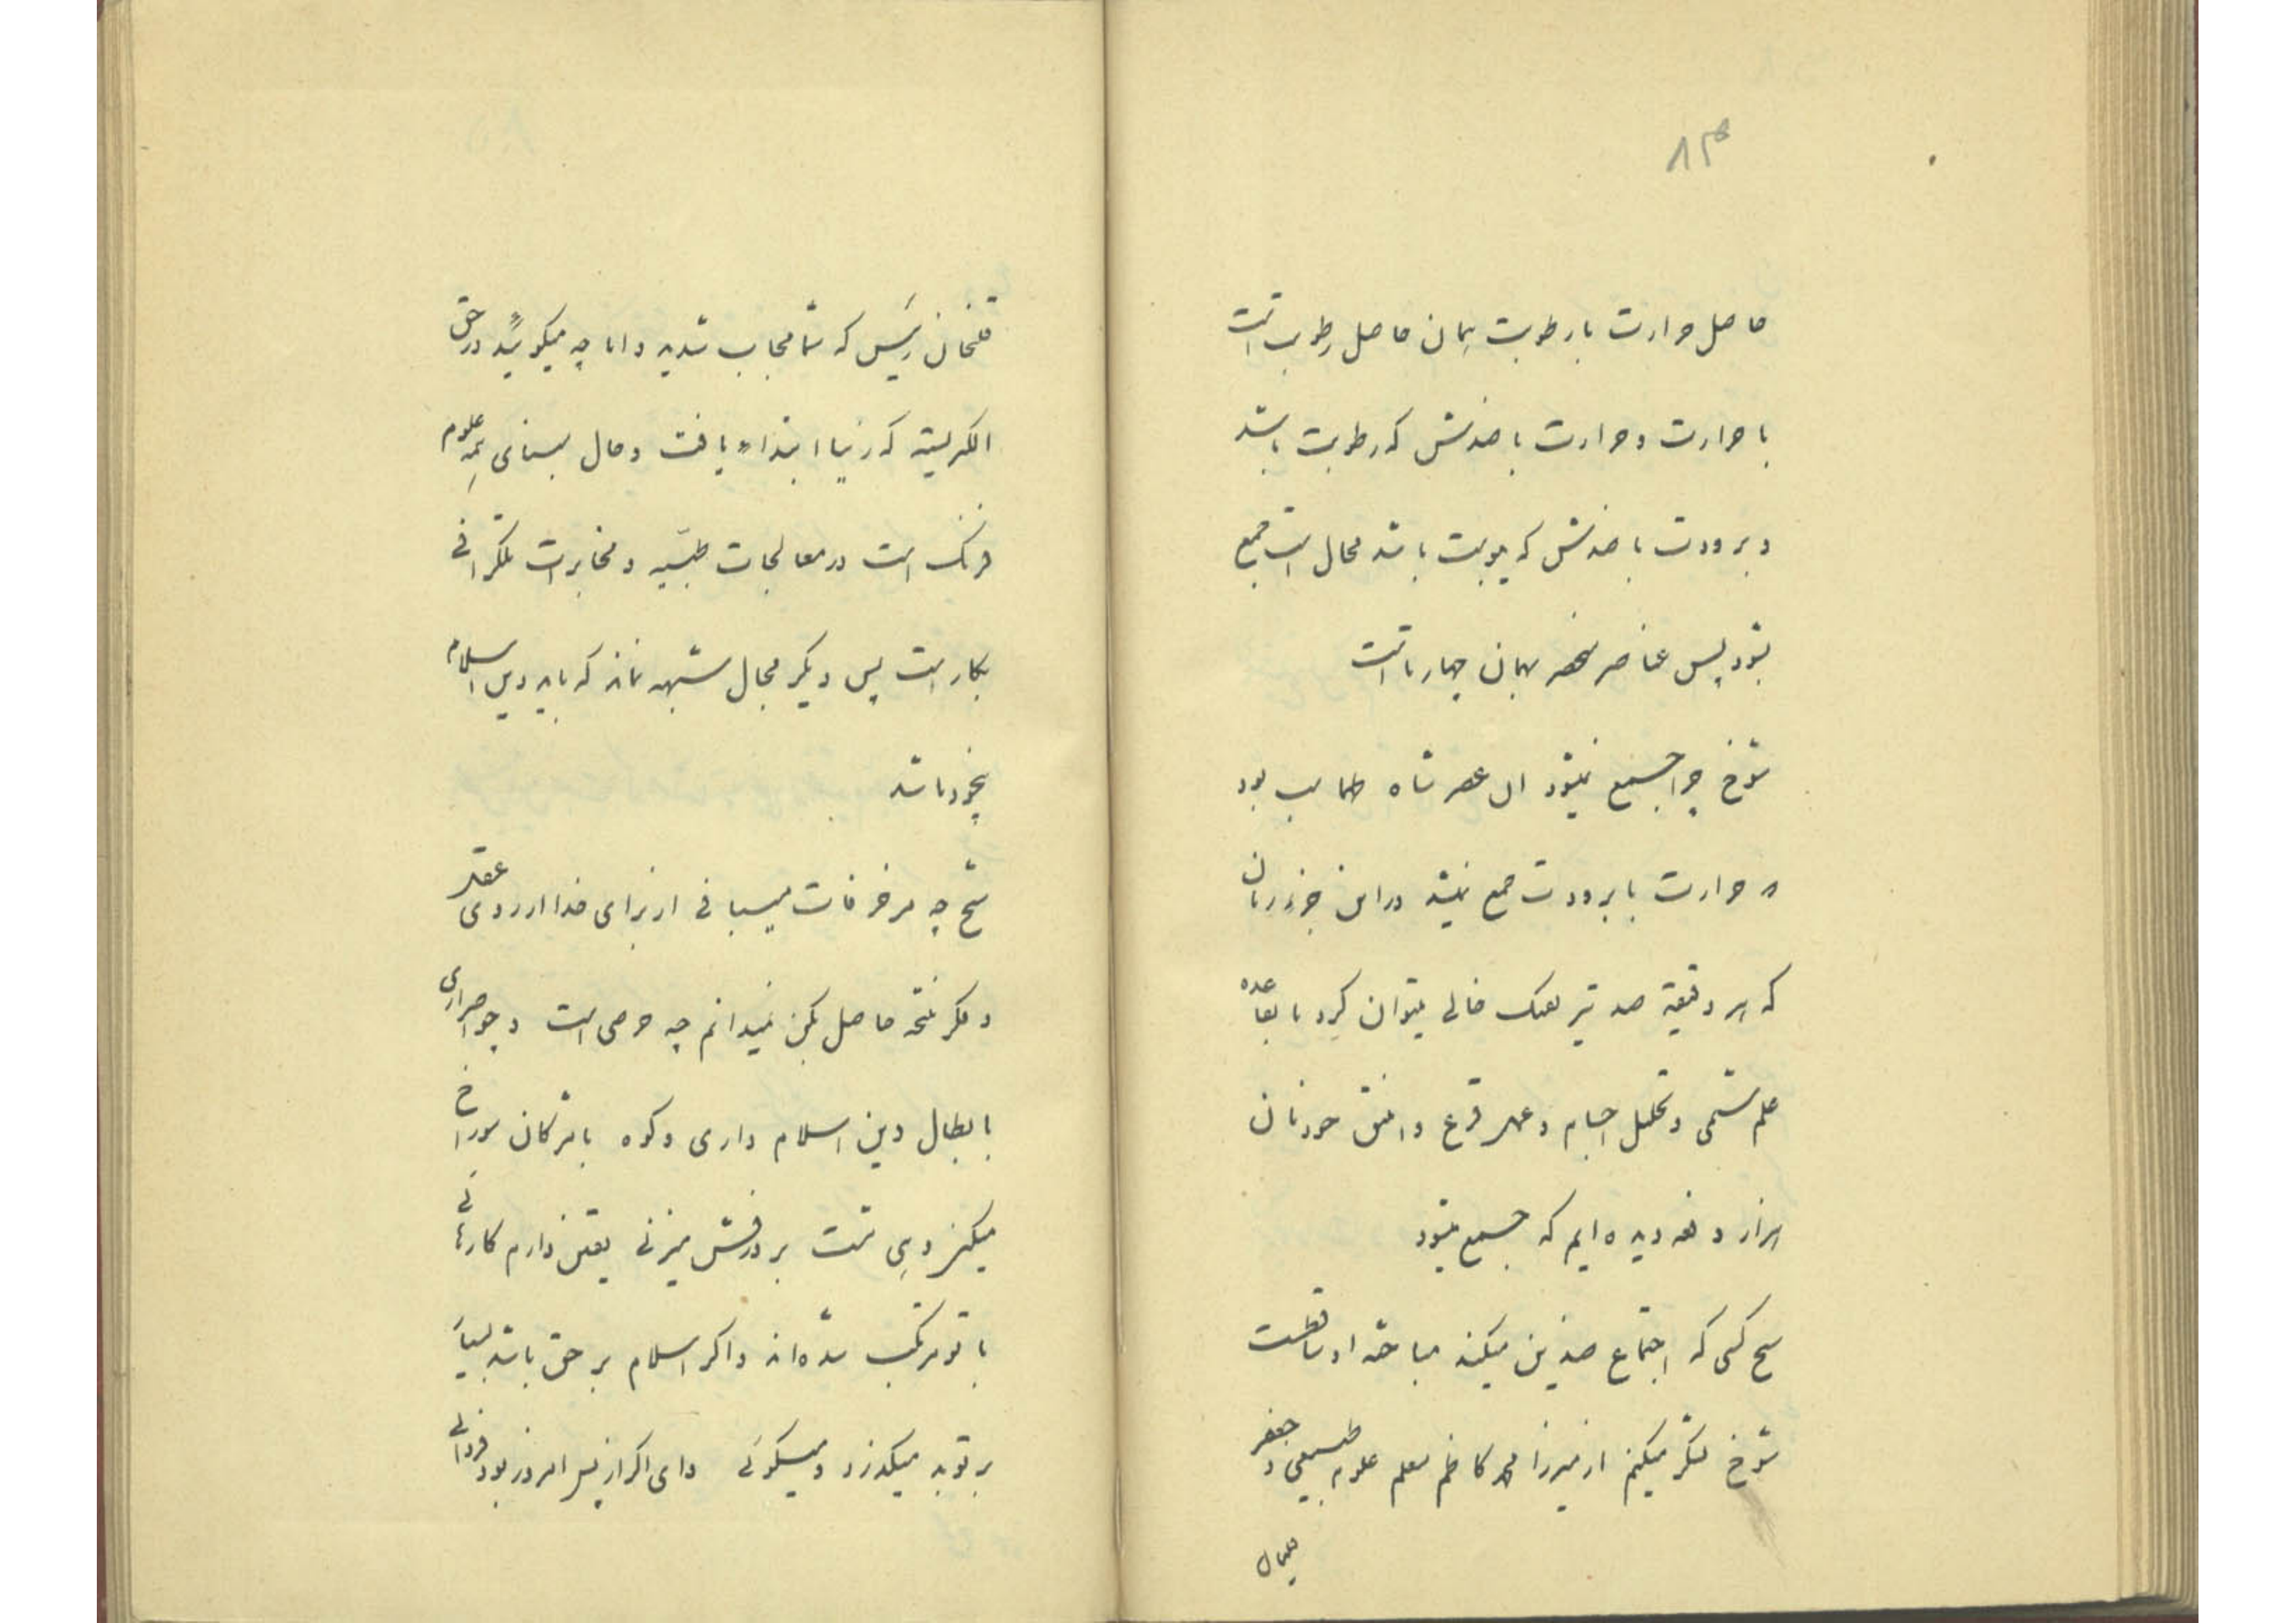 ۸۴
حاصل حرارت با رطوبت همان حاصل رطوبت است
با حرارت و حرارت با ضدش که رطوبت باشد
و برودت با ضدش که یبوست باشد محال است جمع
شود پس عناصر منحصر بهمان چهار تا است
شوخ چرا جمع نمیشود ال عصر شاه طهماسب بود
که حرارت با برودت جمع نمیشد در این جزء زمان
که هر دقیقه صد تیر تفنک خالی میتوان کرد با قاعده
علم شیمی و تحلیل اجسام و عمل قرع و انبیق خودتان
هزار دفعه دیده ایم که جمع میشود
شیخ کسی که اجتماع ضدین میکند مباحثه او ساقط است
شوخ تشکر میکنیم از میرزا محمد کاظم معلم علوم طبیعی و جعفر
قلیخان رئیس که شما مجاب شدید و اما چه میگوئید در حق
الکتریسیته که از نیا ابتداء یافت و حال مبنای همه علوم
فرنک است در معالجات طبیه و مخابرات تلگرافی
بکار است پس دیگر مجال شبهه نماند که باید دین اسلام
پنجروز باشد
شیخ چه مزخرفات میبافی از برای خدا از روی عقل
و فکر نتیجه حاصل بکن نمیدانم چه حرصی است و چه اصراری
بابطال دین اسلام داری و کوه با مژکان سوراخ
میکنی و هی مشت بر درفش میزنی یقین دارم کارهائی
با تو مرتکب شده اند و اگر اسلام بر حق باشد بسیار
بر تو بد میگذرد و میگوئی وای اگر از پس امروز بود فردائی